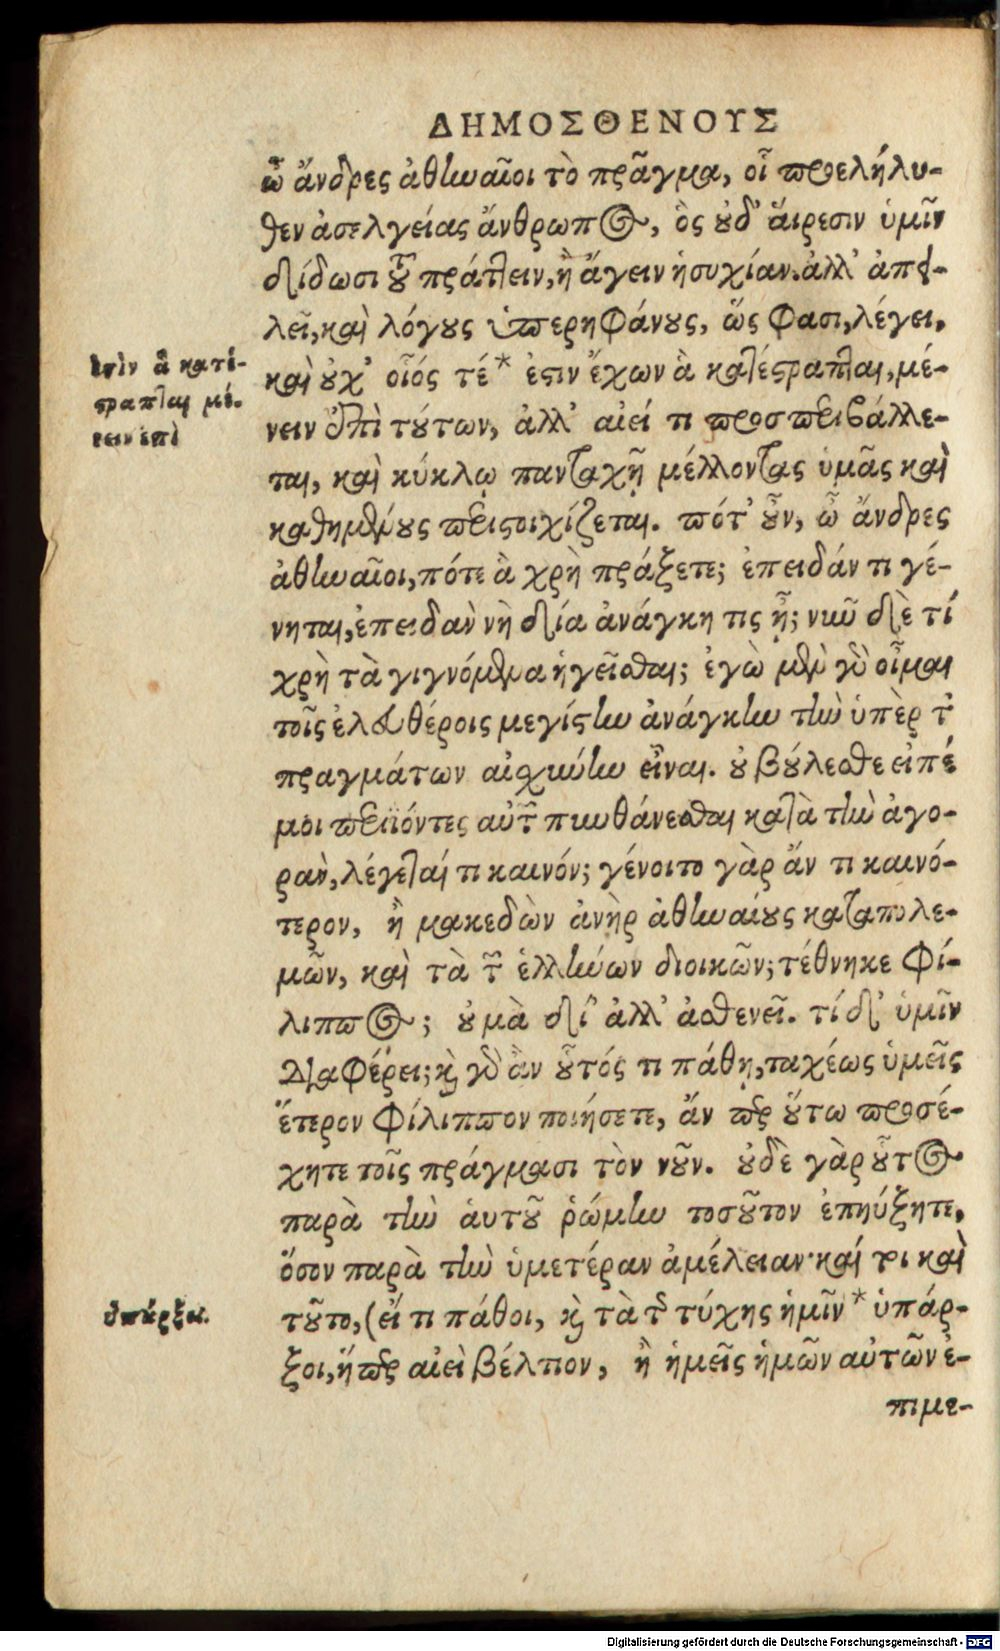 ΔΗΜΟΣΘΕΝΟΥΣ
ὦ ἄνδρες ἀθηναῖοι τὸ πρᾶγμα, οἷ προελήλυ-
θεν ἀσελγείας ἄνθρωπος, ὃς οὐδ' ἅιρεσιν ὑμῖν
δίδωσι τοῦ πράττειν, ἢ ἄγειν ἡσυχίαν. ἀλλ' ἀπει-
λεῖ, καὶ λόγους ὑπερηφάνους, ὥς φασι, λέγει,
καὶ οὐχ' οἷός τέ* ἐστιν ἔχων ἃ κατέστραπται, μέ-
νειν ἐπὶ τούτων, ἀλλ' αἰεί τι προσπεριβάλλε-
ται, καὶ κύκλῳ πανταχῆ μέλλοντας ὑμᾶς καὶ
καθημένους περιστοιχίζεται. πότ' οὖν, ὦ ἄνδρες
ἀθηναῖοι, πότε ἃ χρὴ πράξετε; ἐπειδάν τι γέ-
νηται, ἐπειδὰν νὴ δία ἀνάγκη τις ᾖ; νῦν δὲ τί
χρὴ τὰ γιγνόμενα ἡγεῖσθαι; ἐγὼ μὲν γὰρ οἶμαι
τοῖς ἐλευθέροις μεγίστην ἀνάγκην τὴν ὑπὲρ τῶν
πραγμάτων αἰσχύνην εἶναι. οὐ βούλεσθε εἰπέ
μοι περιϊόντες αὐτῶν πυνθάνεσθαι κατὰ τὴν ἀγο-
ρὰν, λέγεταί τι καινόν; γένοιτο γὰρ ἄν τι καινό-
τερον, ἢ μακεδὼν ἀνὴρ ἀθηναίους καταπολε-
μῶν, καὶ τὰ τῶν ἑλλήνων διοικῶν; τέθνηκε Φί-
λιππος; οὐ μὰ δί' ἀλλ' ἀσθενεῖ. τί δ' ὑμῖν
διαφέρει; καὶ γὰρ ἂν οὗτός τι πάθῃ, ταχέως ὑμεῖς
ἕτερον Φίλιππον ποιήσετε, ἄν περ οὕτω προσέ-
χητε τοῖς πράγμασι τὸν νοῦν. οὐδὲ γὰρ οὗτος
παρὰ τὴν ἁυτοῦ ῥώμην τοσοῦτον ἐπηύξητε,
ὅσον παρὰ τὴν ὑμετέραν ἀμέλειαν· καί τοι καὶ
τοῦτο, (εἴ τι πάθοι, καὶ τὰ τῆς τύχης ἡμῖν* ὑπάρ-
ξοι, ἥπερ αἰεὶ βέλτιον, ἢ ἡμεῖς ἡμῶν αὐτῶν ἐ-
πιμε-
ἐστὶν ἃ κατέ-
στραπται μέ-
νειν ἐπὶ
ὑπάρξει.
Digitalisierung gefördert durch die Deutsche Forschungsgemeinschaft - DFG